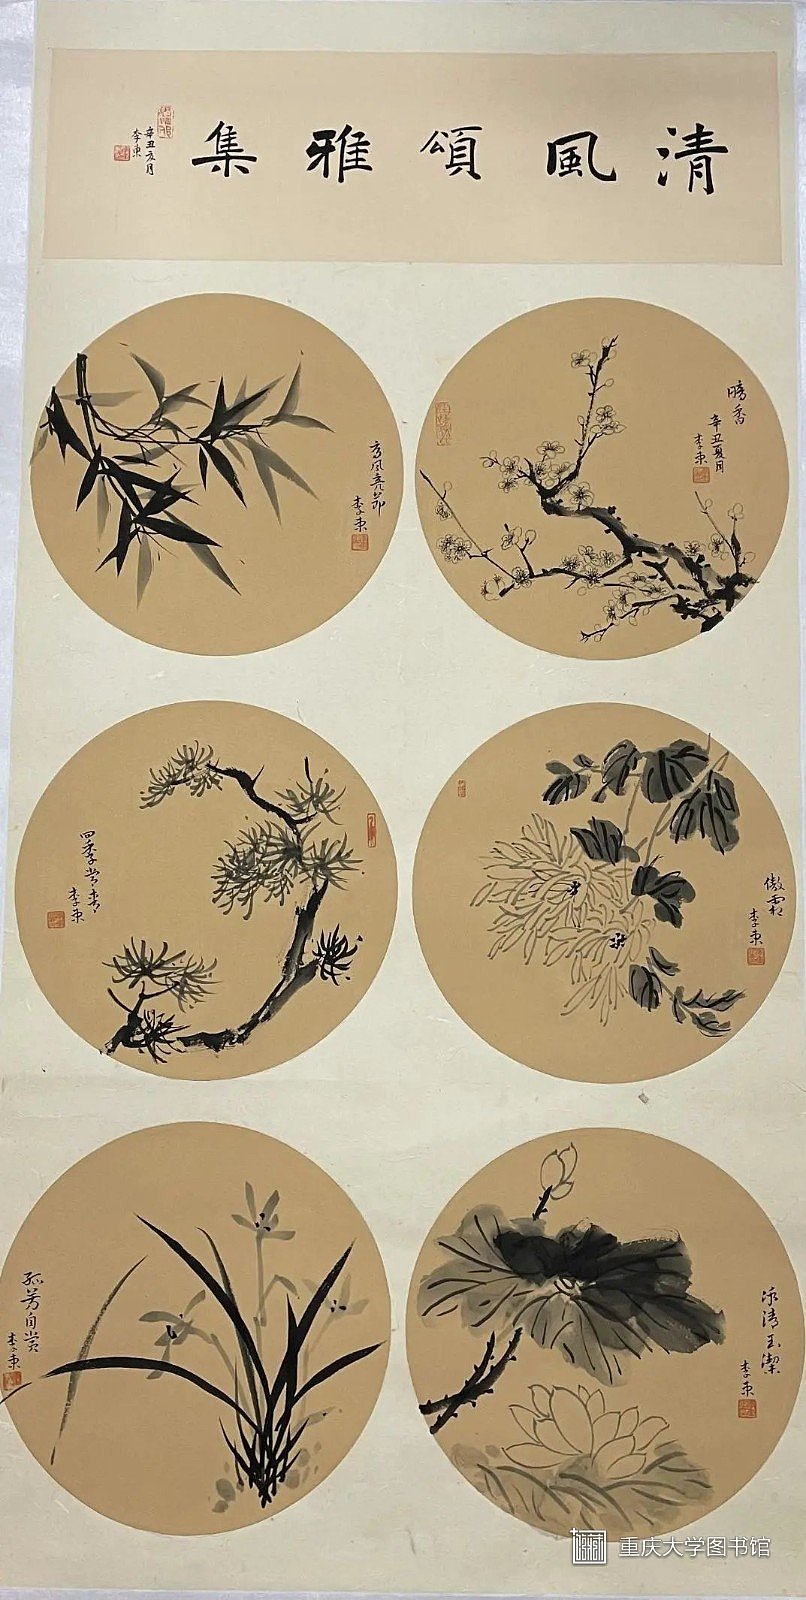 清風頌雅集
辛丑夏月
李東
暗香
辛丑夏月
李東
高风亮节
李東
傲霜
李東
四季常青
李東
冰清玉潔
李東
孤芳自赏
李東
重庆大学图书馆